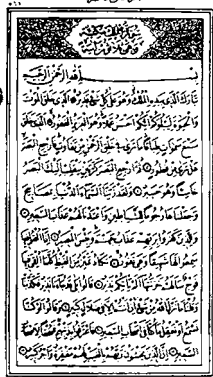 بسم الله الرحمن الرحيم
تبارك الذي بيده الملك وهو على كل شيء قدير الذي خلق الموت
والحيوة ليبلوكم ايكم احسن عملا وهو العزيز الغفور الذي خلق
سبع سموات طباقا ما ترى في خلق الرحمن من تفاوت فارجع البصر
هل ترى من فطور ثم ارجع البصر كرتين ينقلب اليك البصر
خاسئا وهو حسير ولقد زينا السماء الدنيا بمصابيح
وجعلناها رجوما للشياطين واعتدنا لهم عذاب السعير
وللذين كفروا بربهم عذاب جهنم وبئس المصير اذا القوا فيها
سمعوا لها شهيقا وهي تفور تكاد تميز من الغيظ كلما القي فيها
فوج سالهم خزنتها الم ياتكم نذير قالوا بلى قد جاءنا نذير فكذبنا
وقلنا ما نزل الله من شيء ان انتم الا في ضلال كبير وقالوا لو كنا
نسمع او نعقل ما كنا في اصحاب السعير فاعترفوا بذنبهم فسحقا لاصحاب
السعير ان الذين يخشون ربهم بالغيب لهم مغفرة واجر كبير